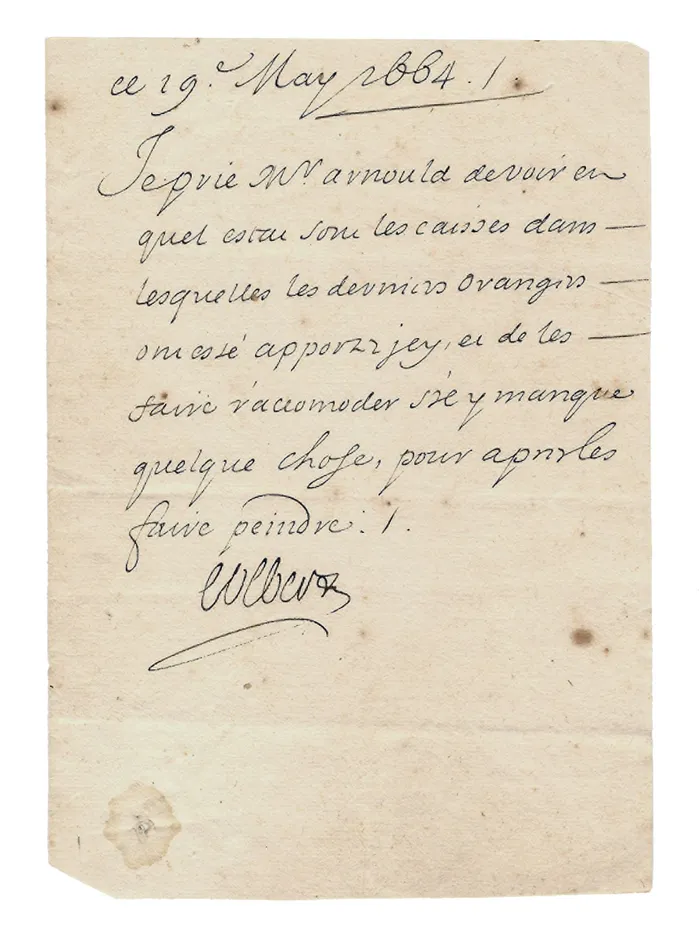 ce 19.e May 1664. /.
Je prie Mr. arnould de voir en
quel estat sont les caisses dans —
lesquelles les derniers orangers —
ont esté apportez icy, et de les —
faire r'accomoder s'il y manque
quelque chose, pour apres les
faire peindre. /.
Colbert